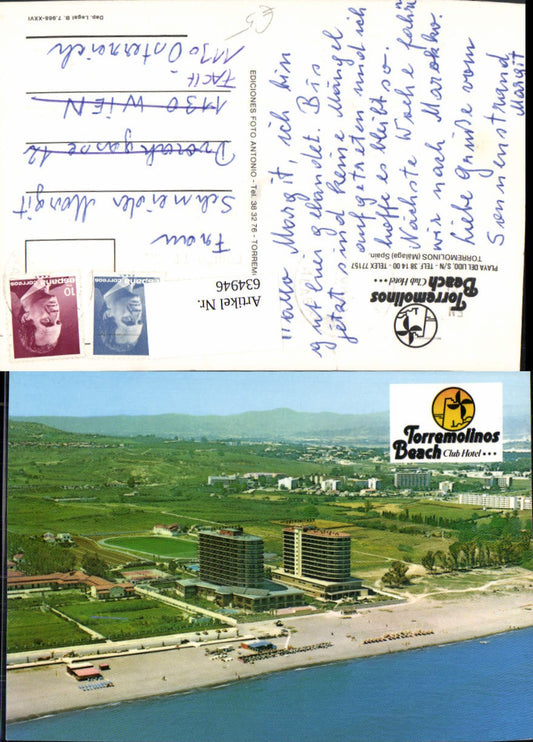 Dep. Legal B. 7.988-XXVI
Frau
Schneider Margit
Dvorakgasse 12
1130 WIEN
FACH
1130 Österreich
EDICIONES FOTO ANTONIO - Tel. 38 32 76 - TORREM
Artikel Nr.
634946
10
españa
españa
Hallo Margit, ich bin
gut hier gelandet. Bis
jetzt sind keine Mängel
aufgetreten und ich
hoffe es bleibt so.
Nächste Woche fahren
wir nach Marokko.
Liebe Grüße vom
Sonnenstrand
Margit
Torremolinos
Beach Club Hotel
PLAYA DEL LIDO, S/N · TELF. 38 14 00 · TELEX 77157
TORREMOLINOS (Málaga) Spain
Torremolinos
Beach Club Hotel